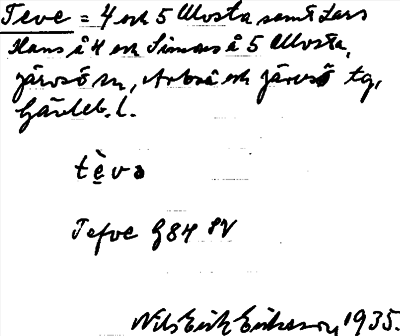 Teve = 4 och 5 Mosta samt Lars
Hans å 4 och Simons å 5 Mosta,
Järvsö sn, Arbrå och Järvsö tg,
Gävleb. l.
tèvə
Tefve G 84 8V
Nils Erik Eriksson 1935.